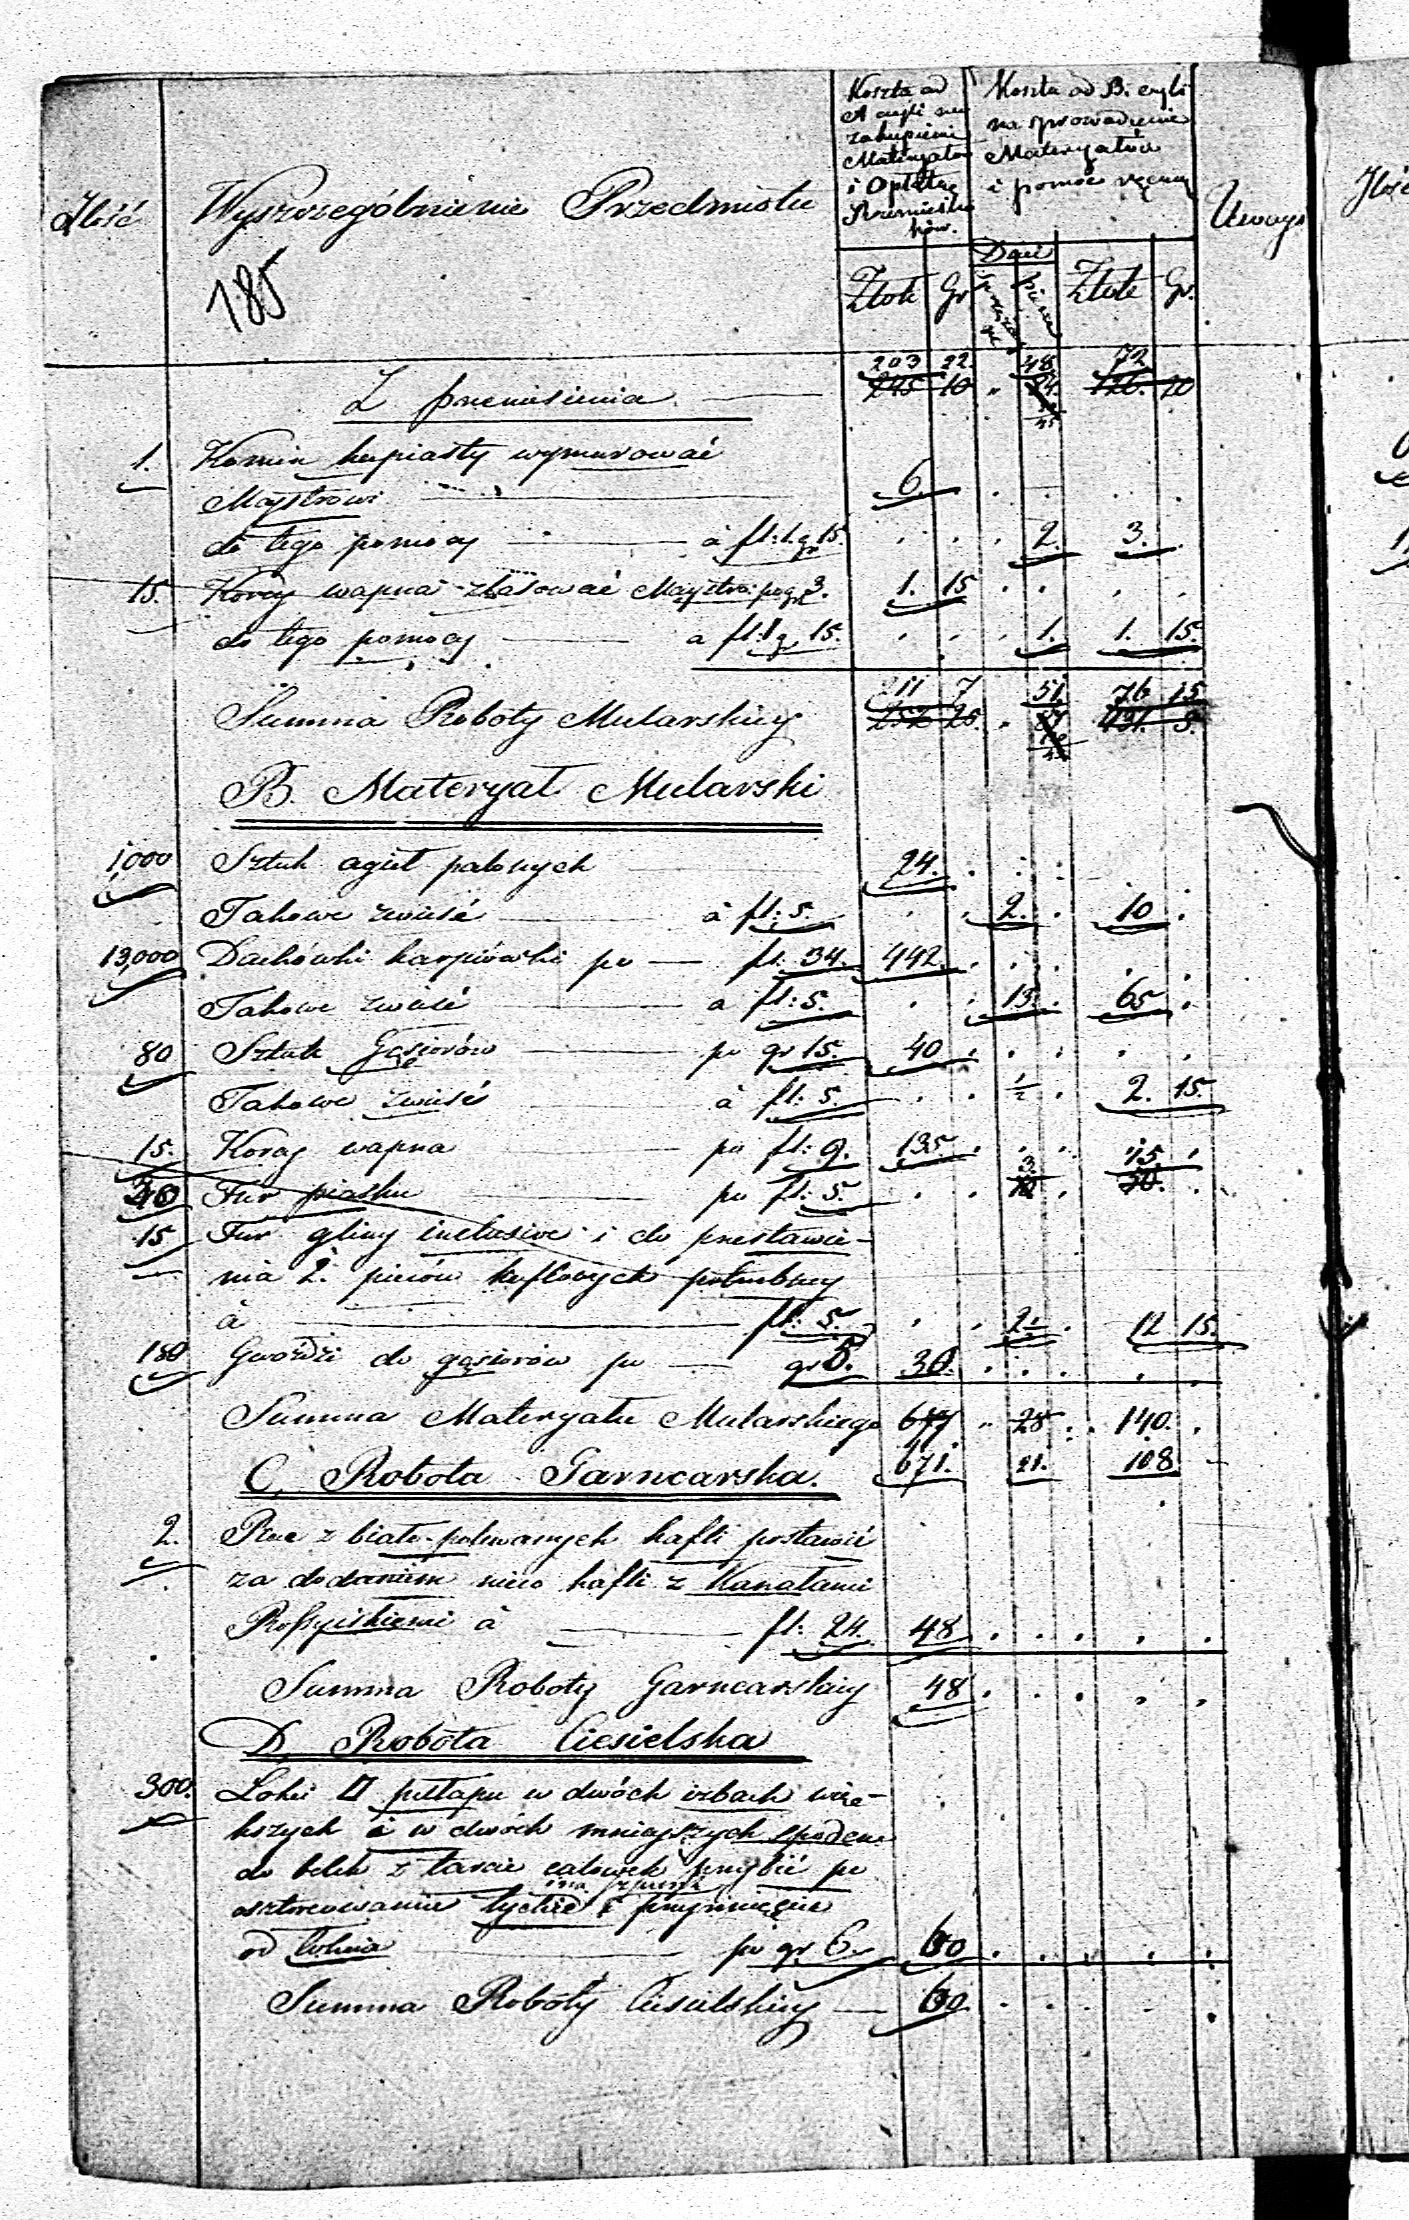 Ilość
Wyszczególnienie Przedmiotu
185
Koszta od
A czyli na
zakupienie
Materyałów
i Opłatę
Rzemieślni
ków.
Koszta od B. czyli
na sprowadzenie
Materyałów
i pomoc ręczną
Uwaga
Dni
Złote Gr. Złote Gr.
203 22. 48 72
Z przeniesienia 245 10 " 126. 20
1. Komin kapiasty wymurować
Maystrowi 6.
do tego pomocy à fl: 1. gr 15. 2. 3.
15. Korcy wapna zlasować Maystro: po gr 3. 1. 15
do tego pomocy a fl: 1 gr 15. 1. 1. 15.
211 7 51. 76 15
Summa Roboty Mularskiey 252 25. 131. 5.
B. Materyał Mularski
1,000 Sztuk cygieł palonych 24.
Takowe zwieść à fl: 5. 2. 10
13,000 Dachówki karpiówki po fl. 34. 442.
Takowe zwieść a fl: 5. 13. 65
80 Sztuk Gąsiorów po gr 15. 40
Takowe zwieść à fl: 5. ½ 2. 15.
15. Korcy wapna po fl: 9. 135. 3. 15
Fur piasku po fl: 5.
15 Fur gliny inclusive i do przestawie-
nia 2. pieców kaflowych potrzebney
à fl: 5. 2½ 12 15.
180 Gwoździ do gąsiorów po gr 5. 30.
Summa Materyału Mularskiego 677 " 28 140.
671. 21. 108
C. Robota Garncarska.
2. Piece z biało-polewanych kafli postawić
za dodaniem nieco kafli z Kanałami
Rossyiskiemi à fl: 24. 48
Summa Roboty Garncarskiey 48
D Robota Ciesielska
300. Łokci □ pułapu w dwóch izbach wię-
kszych i w dwóch mnieyszych spodem
do belek z tarcic calówek przybić po
osztorcowaniu tychże i przyrznięcie
od łokcia po gr 6. 60
Summa Roboty Ciesielskiey 60